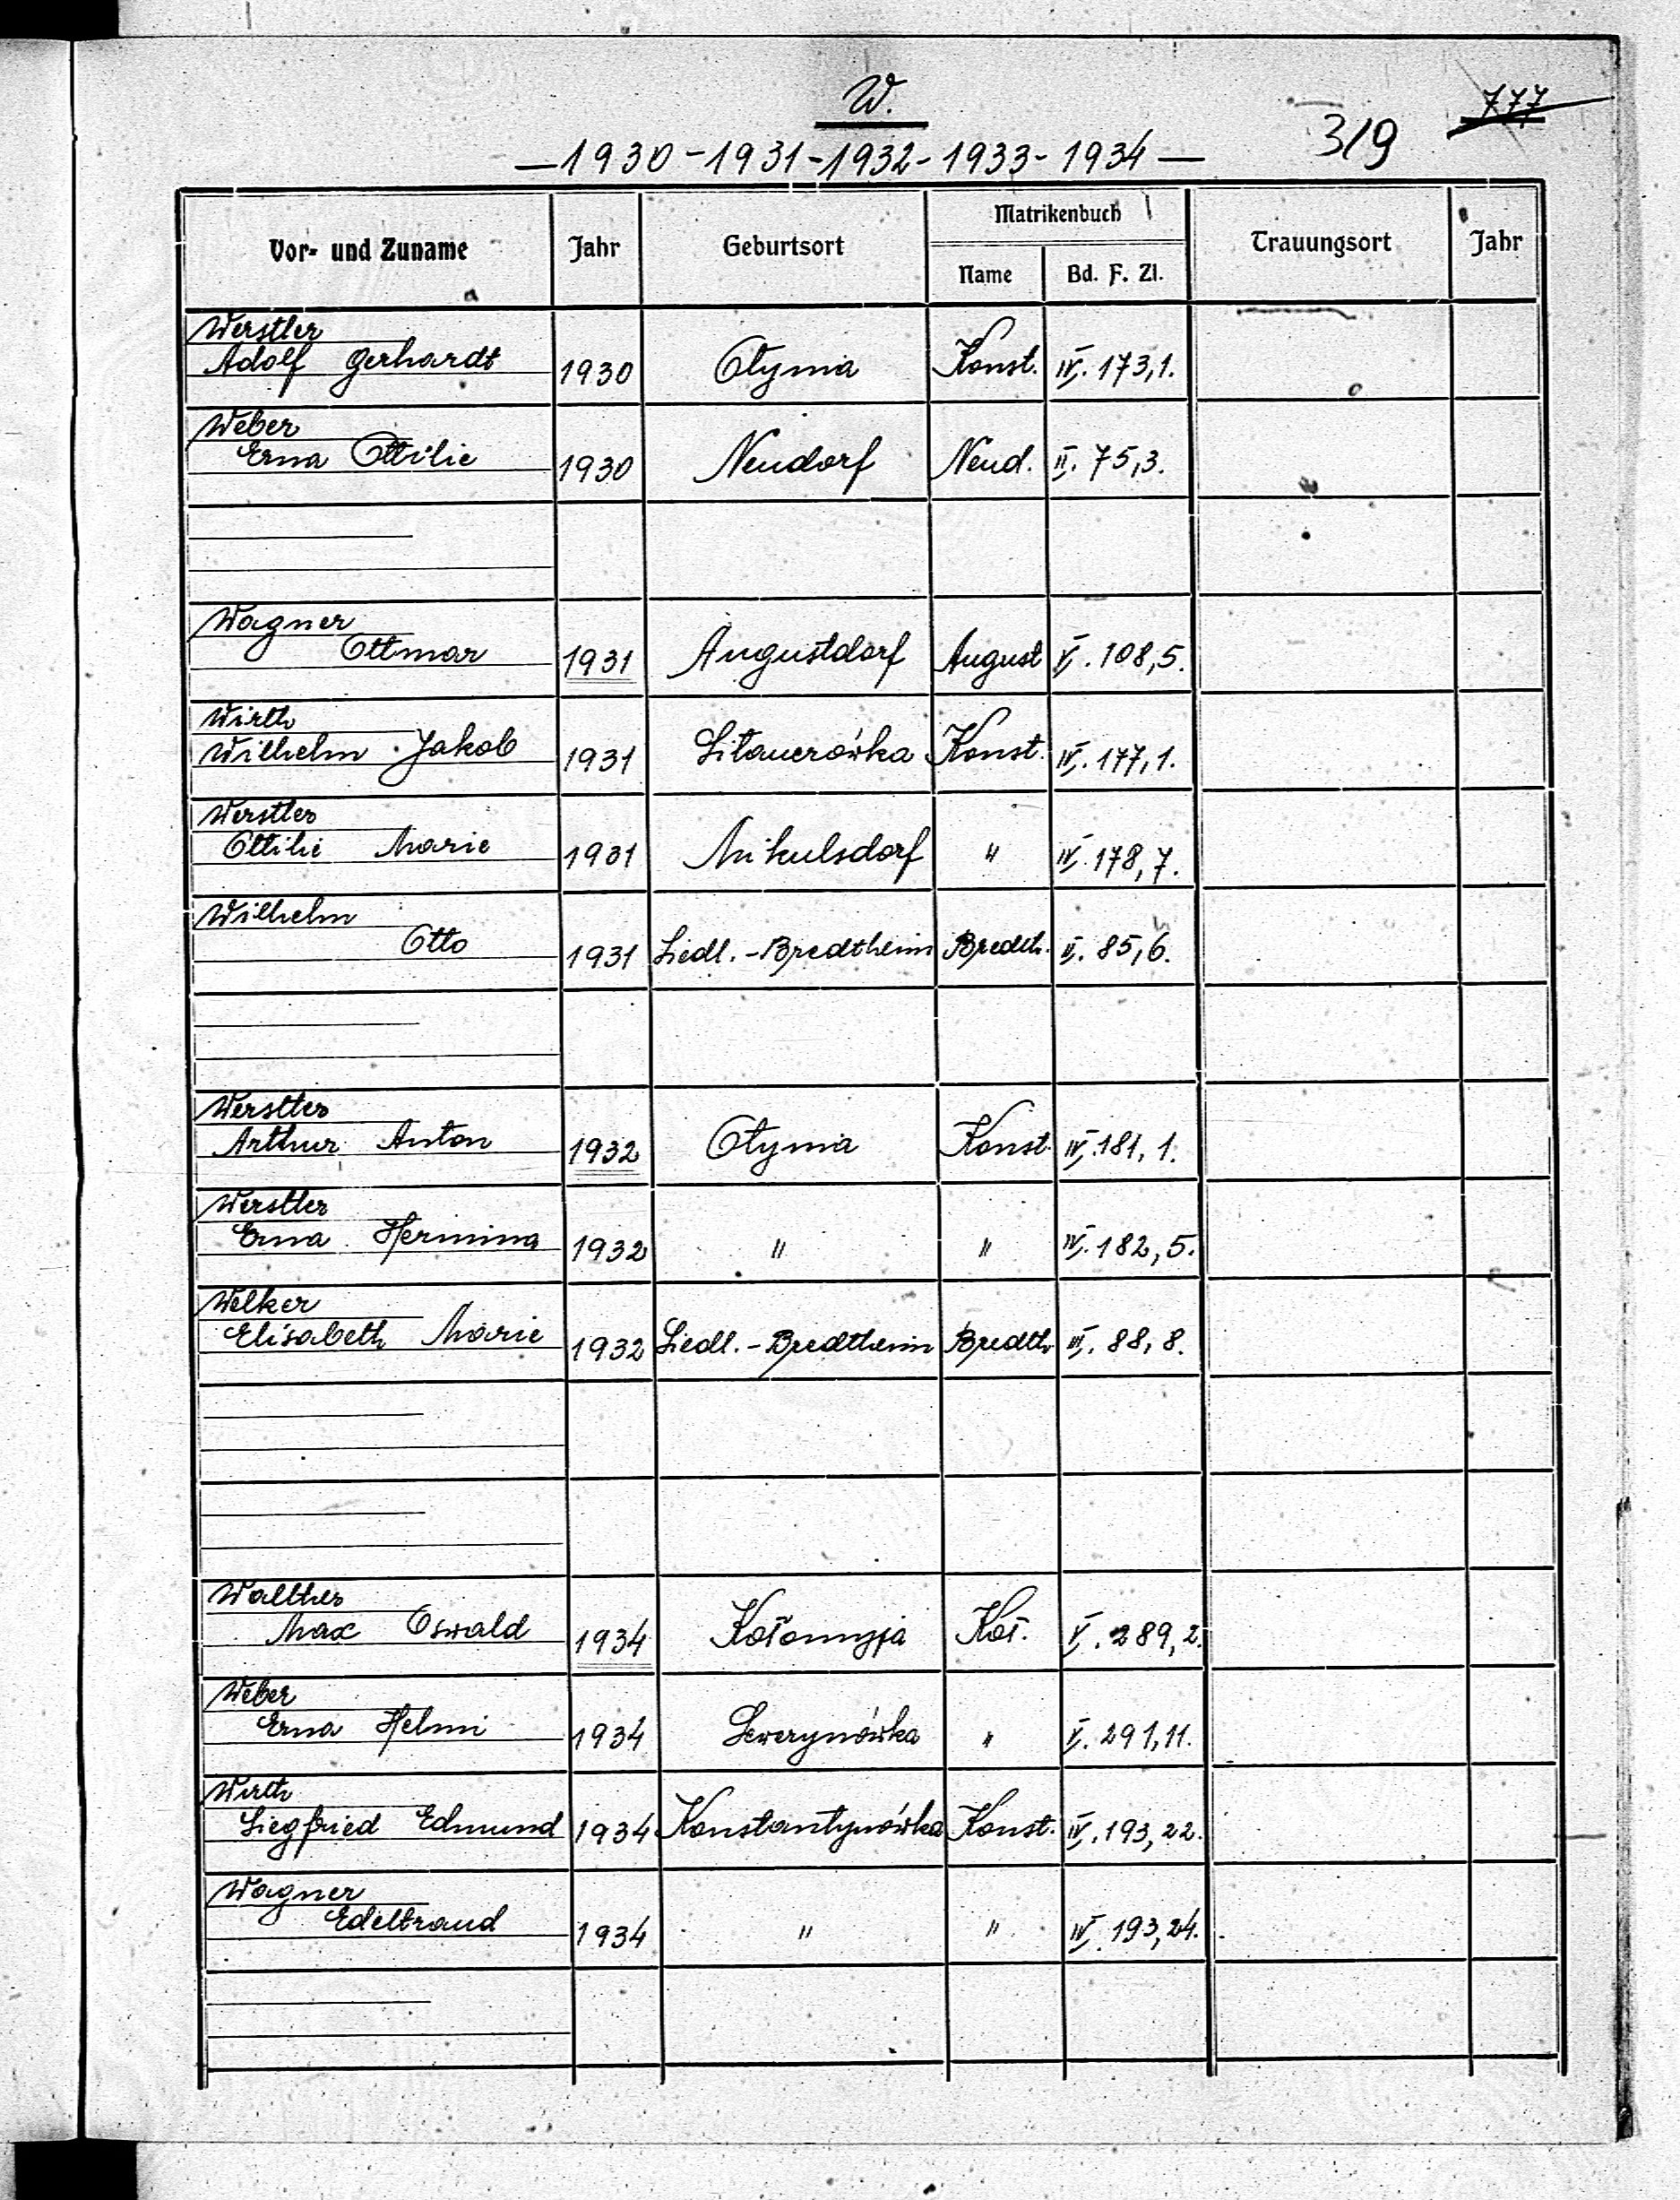 W.
777
319
—1930-1931-1932-1933-1934—
Vor- und Zuname Jahr Geburtsort Matrikenbuch Trauungsort Jahr
Name Bd. F. Zl.
Werstler
Adolf Gerhardt 1930 Otynia Konst. IV. 173,1.
Weber
Erna Ottilie 1930 Neudorf Neud. II. 75,3.
Wagner
Ottmar 1931 Augustdorf August V. 108,5.
Wirth
Wilhelm Jakob 1931 Sitauerówka Konst. IV. 177,1.
Werstler
Ottilie Marie 1931 Mikulsdorf " IV. 178,7.
Wilhelm
Otto 1931 Siedl.-Bredtheim Bredth. II. 85,6.
Werstler
Arthur Anton 1932 Otynia Konst. IV. 181, 1.
Werstler
Erna Hermina 1932 " " IV. 182,5.
Welker
Elisabeth Marie 1932 Siedl.-Bredtheim Bredth III. 88,8.
Walther
Max Oswald 1934 Kołomyja Koł. V. 289,2.
Weber
Erna Helmi 1934 Sewerynówka " V. 291,11.
Wirth
Siegfried Edmund 1934 Konstantynówka Konst. IV. 193,22.
Wagner
Edeltraud 1934 " " IV. 193,24.